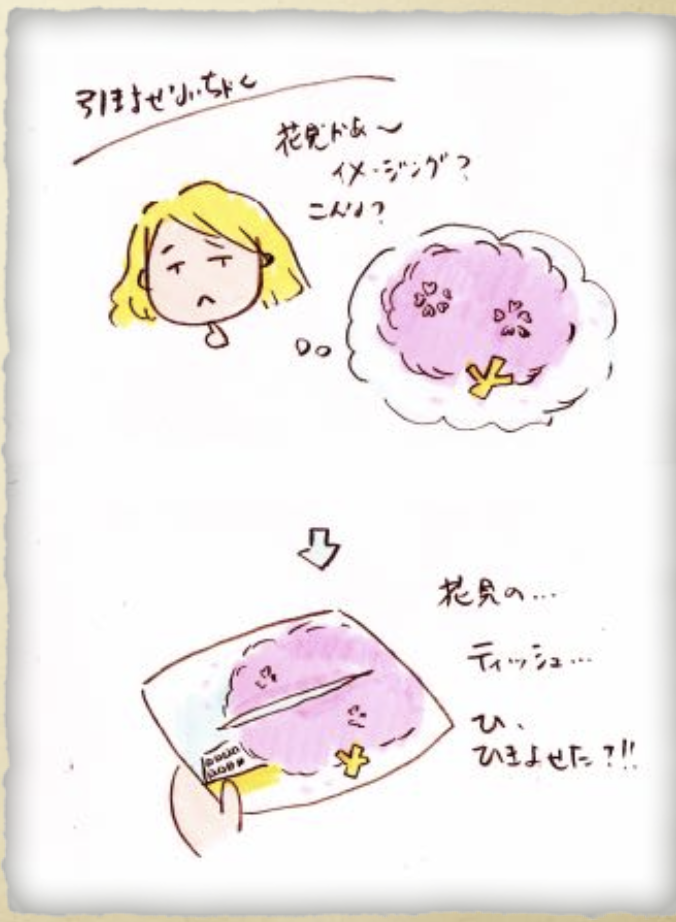 引きよせ
花見かぁ〜
イメージング?
こんな?
花見の…
ティッシュ…
ひ、
ひきよせた?!!